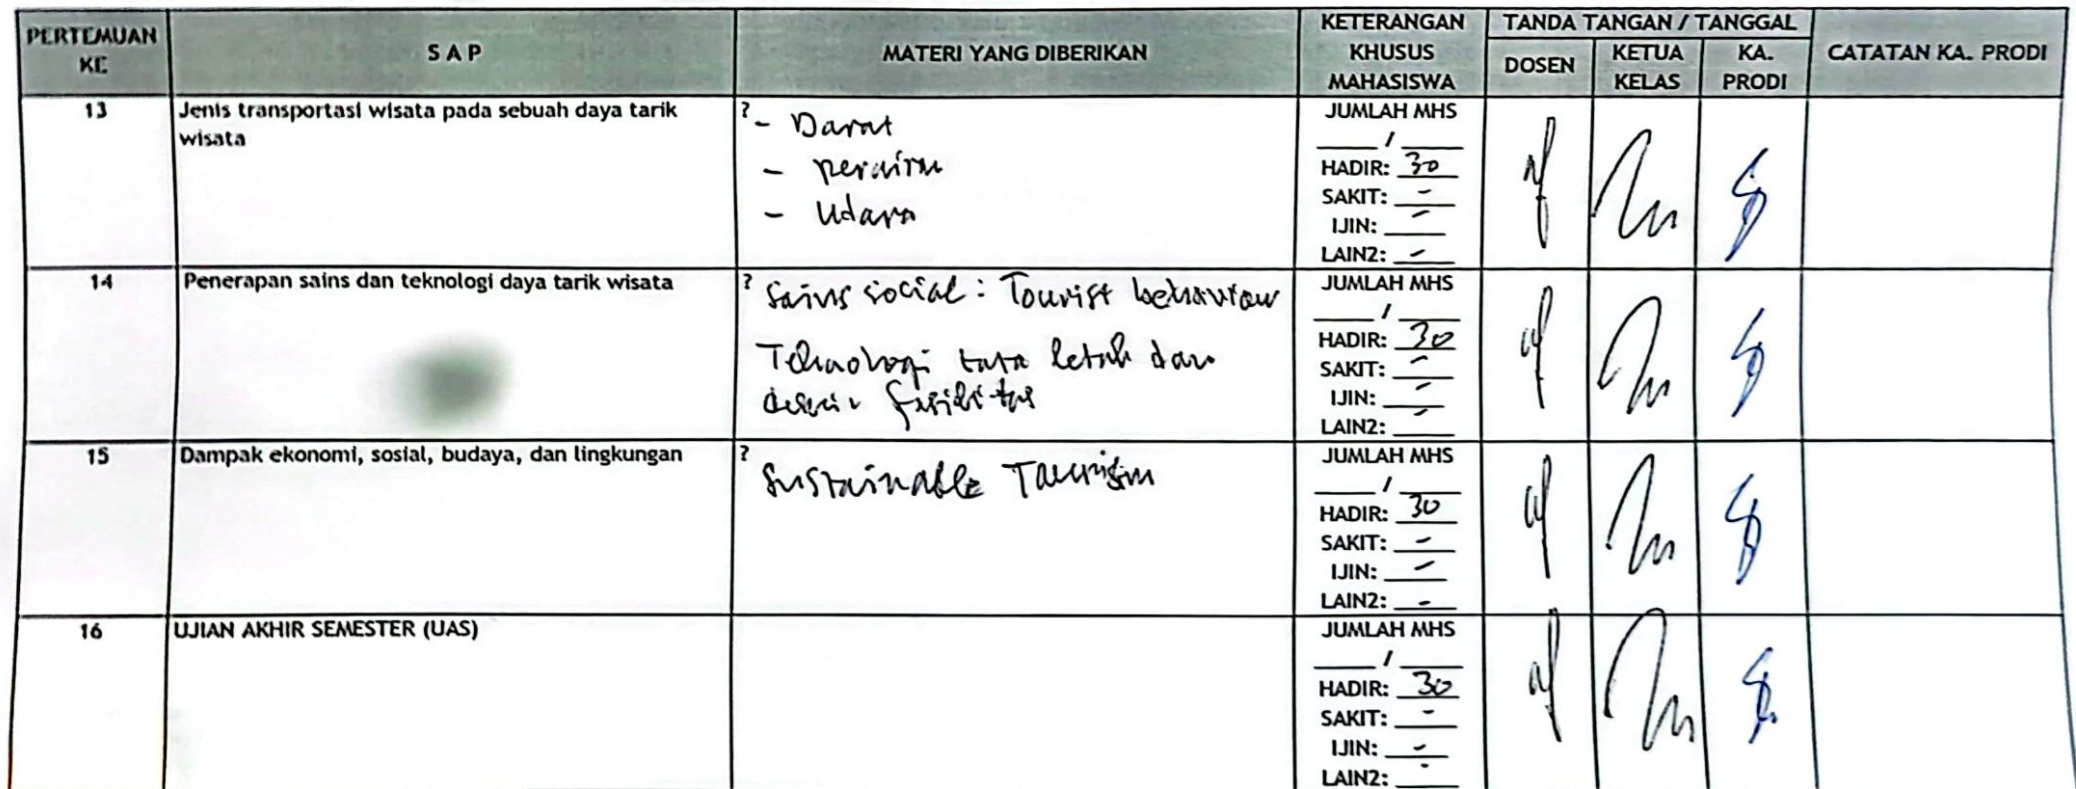 PERTEMUAN KE
S A P
MATERI YANG DIBERIKAN
KETERANGAN KHUSUS MAHASISWA
TANDA TANGAN / TANGGAL
DOSEN
KETUA KELAS
KA. PRODI
CATATAN KA. PRODI
13
Jenis transportasi wisata pada sebuah daya tarik
wisata
?
- Darat
- perairan
- Udara
JUMLAH MHS
____ / ____
HADIR: 30
SAKIT: -
IJIN: -
LAIN2: -
14
Penerapan sains dan teknologi daya tarik wisata
?
Sains social : Tourist behaviour
Teknologi tata letak dan
desain fasilitas
JUMLAH MHS
____ / ____
HADIR: 30
SAKIT: -
IJIN: -
LAIN2: -
15
Dampak ekonomi, sosial, budaya, dan lingkungan
?
Sustainable Tourism
JUMLAH MHS
____ / ____
HADIR: 30
SAKIT: -
IJIN: -
LAIN2: -
16
UJIAN AKHIR SEMESTER (UAS)
JUMLAH MHS
____ / ____
HADIR: 30
SAKIT: -
IJIN: -
LAIN2: -